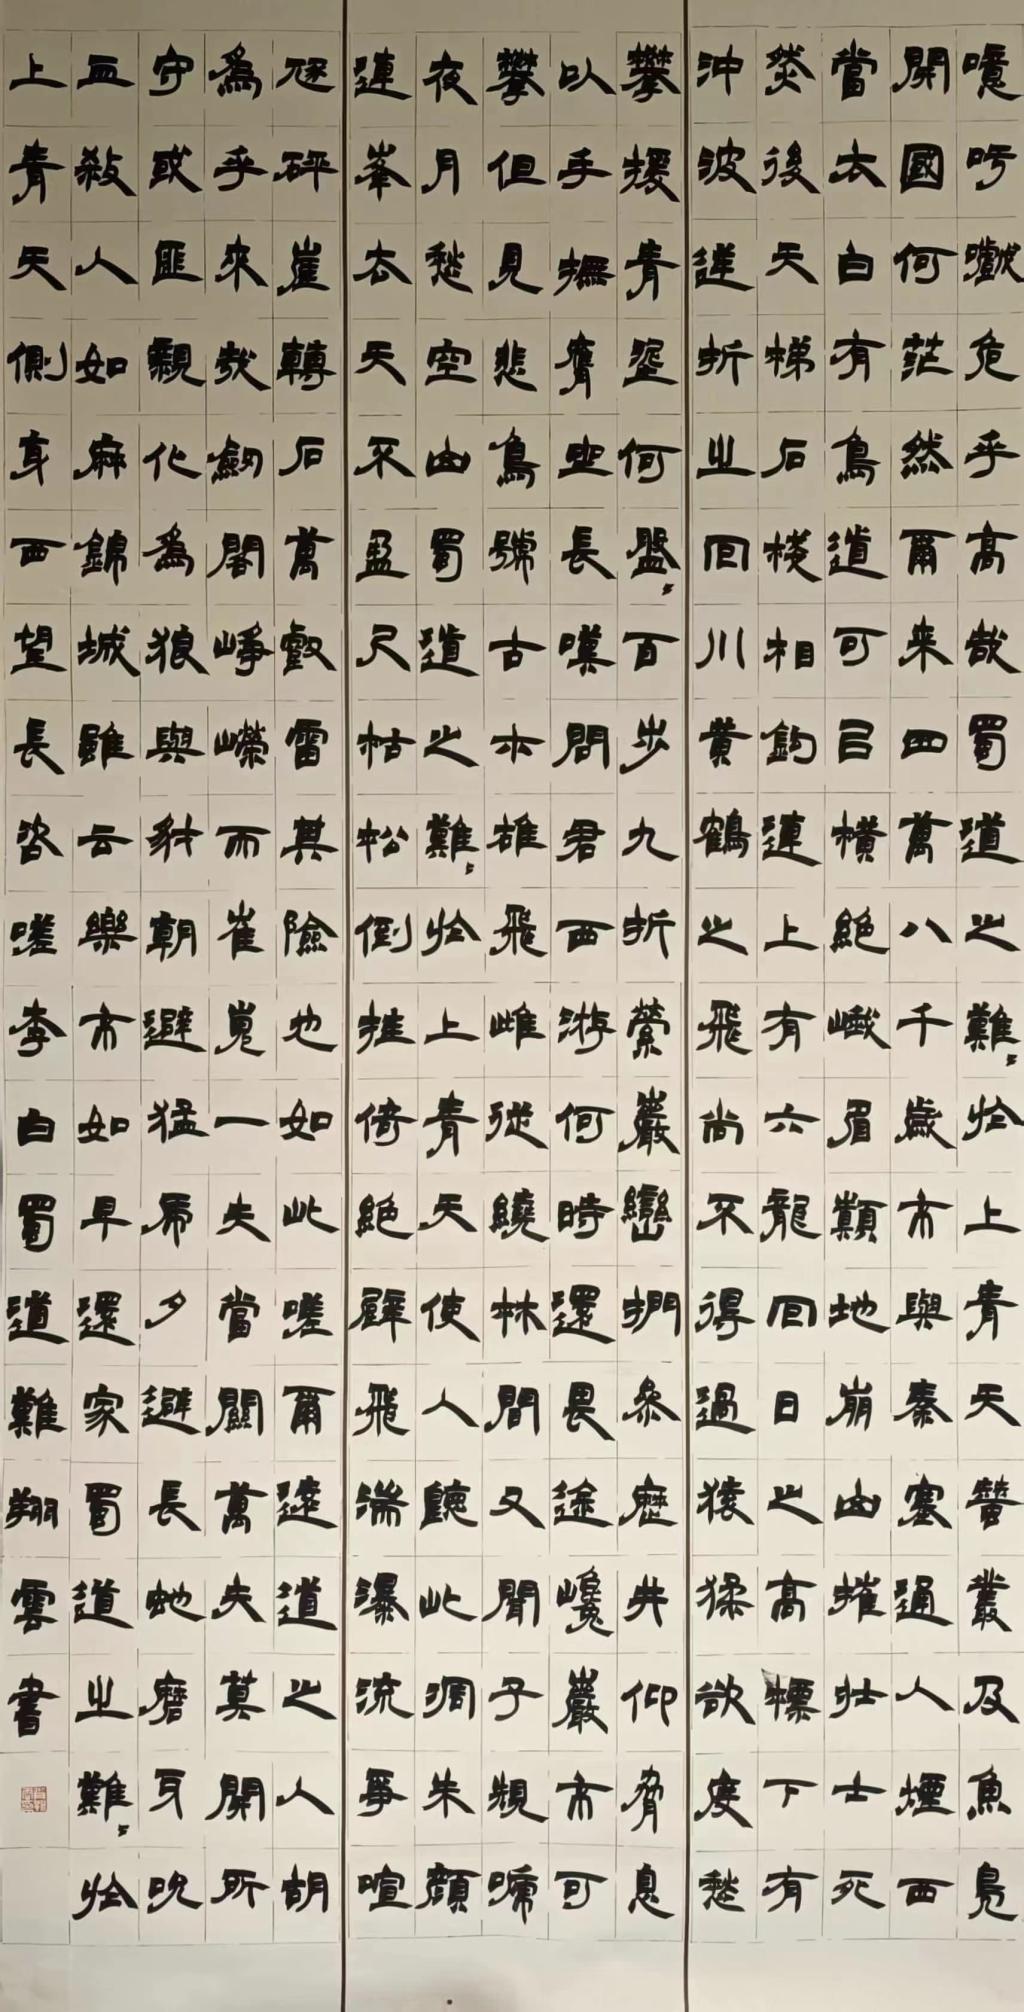 噫吁嚱危乎高哉蜀道之難〻於上青天蠶叢及魚鳧
開國何茫然爾来四萬八千歲不與秦塞通人煙西
當太白有鳥道可以橫絕峨眉巔地崩山摧壯士死
然後天梯石棧相鈎連上有六龍回日之高標下有
沖波逆折之回川黃鶴之飛尚不得過猿猱欲度愁
攀援青泥何盤〻百步九折縈巖巒捫參歷井仰脅息
以手撫膺坐長嘆問君西游何時還畏途巉巖不可
攀但見悲鳥號古木雄飛雌從繞林間又聞子規啼
夜月愁空山蜀道之難〻於上青天使人聽此凋朱顏
連峯去天不盈尺枯松倒挂倚絕壁飛湍瀑流爭喧
豗砯崖轉石萬壑雷其險也如此嗟爾遠道之人胡
為乎來哉劍閣崢嶸而崔嵬一夫當關萬夫莫開所
守或匪親化為狼與豺朝避猛虎夕避長蛇磨牙吮
血殺人如麻錦城雖云樂不如早還家蜀道之難〻於
上青天側身西望長咨嗟李白蜀道難翔雲書